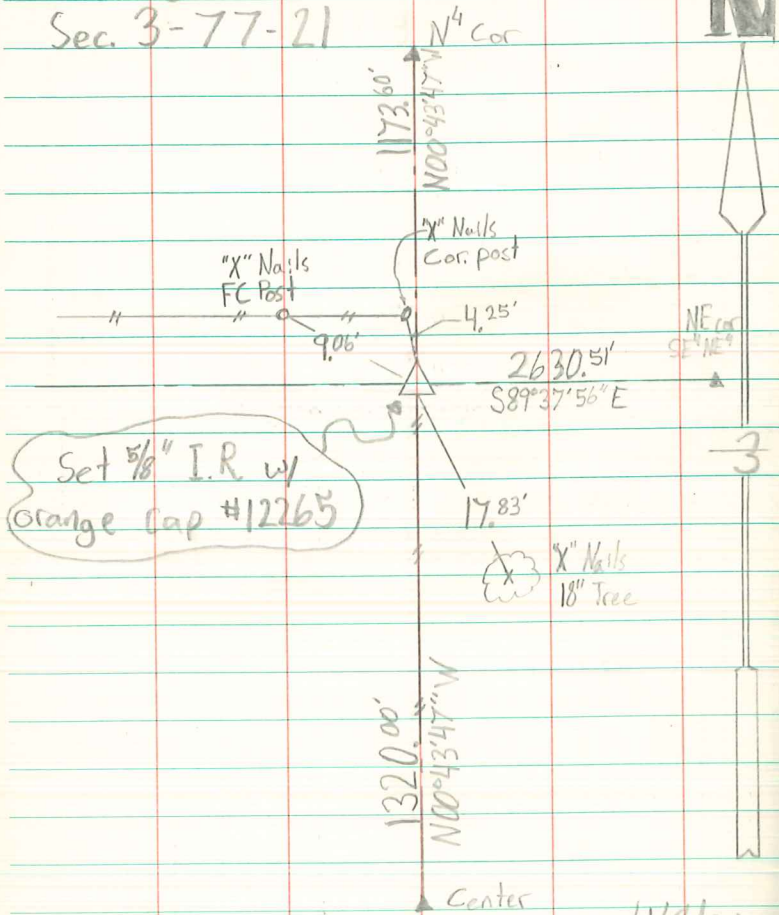 Sec. 3-77-21
N
N⁴ Cor
1173.60'
N00°43'47"W
"X" Nails
Cor. post
"X" Nails
FC Post
9.06'
4.25'
NE cor
SE⁴NE⁴
2630.51'
S89°37'56"E
3
Set 5/8" I.R w/
orange cap #12265
17.83'
X
"X" Nails
18" Tree
1320.00'
N00°43'47"W
Center